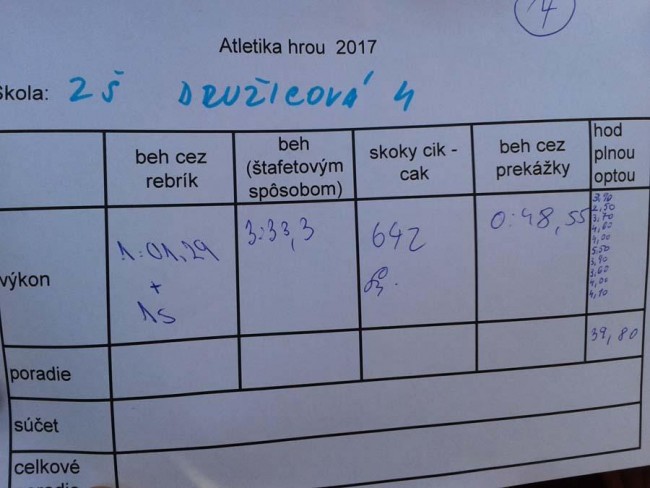 Atletika hrou 2017
Škola: ZŠ DRUŽICOVÁ 4
beh cez
rebrík
beh
(štafetovým
spôsobom)
skoky cik -
cak
beh cez
prekážky
hod
plnou
loptou
výkon
1:01,29
+
1s
3:33,3
642
0:48,55
3,90
2,50
3,70
4,60
4,00
5,50
3,90
3,60
4,00
4,10
39,80
poradie
súčet
celkové